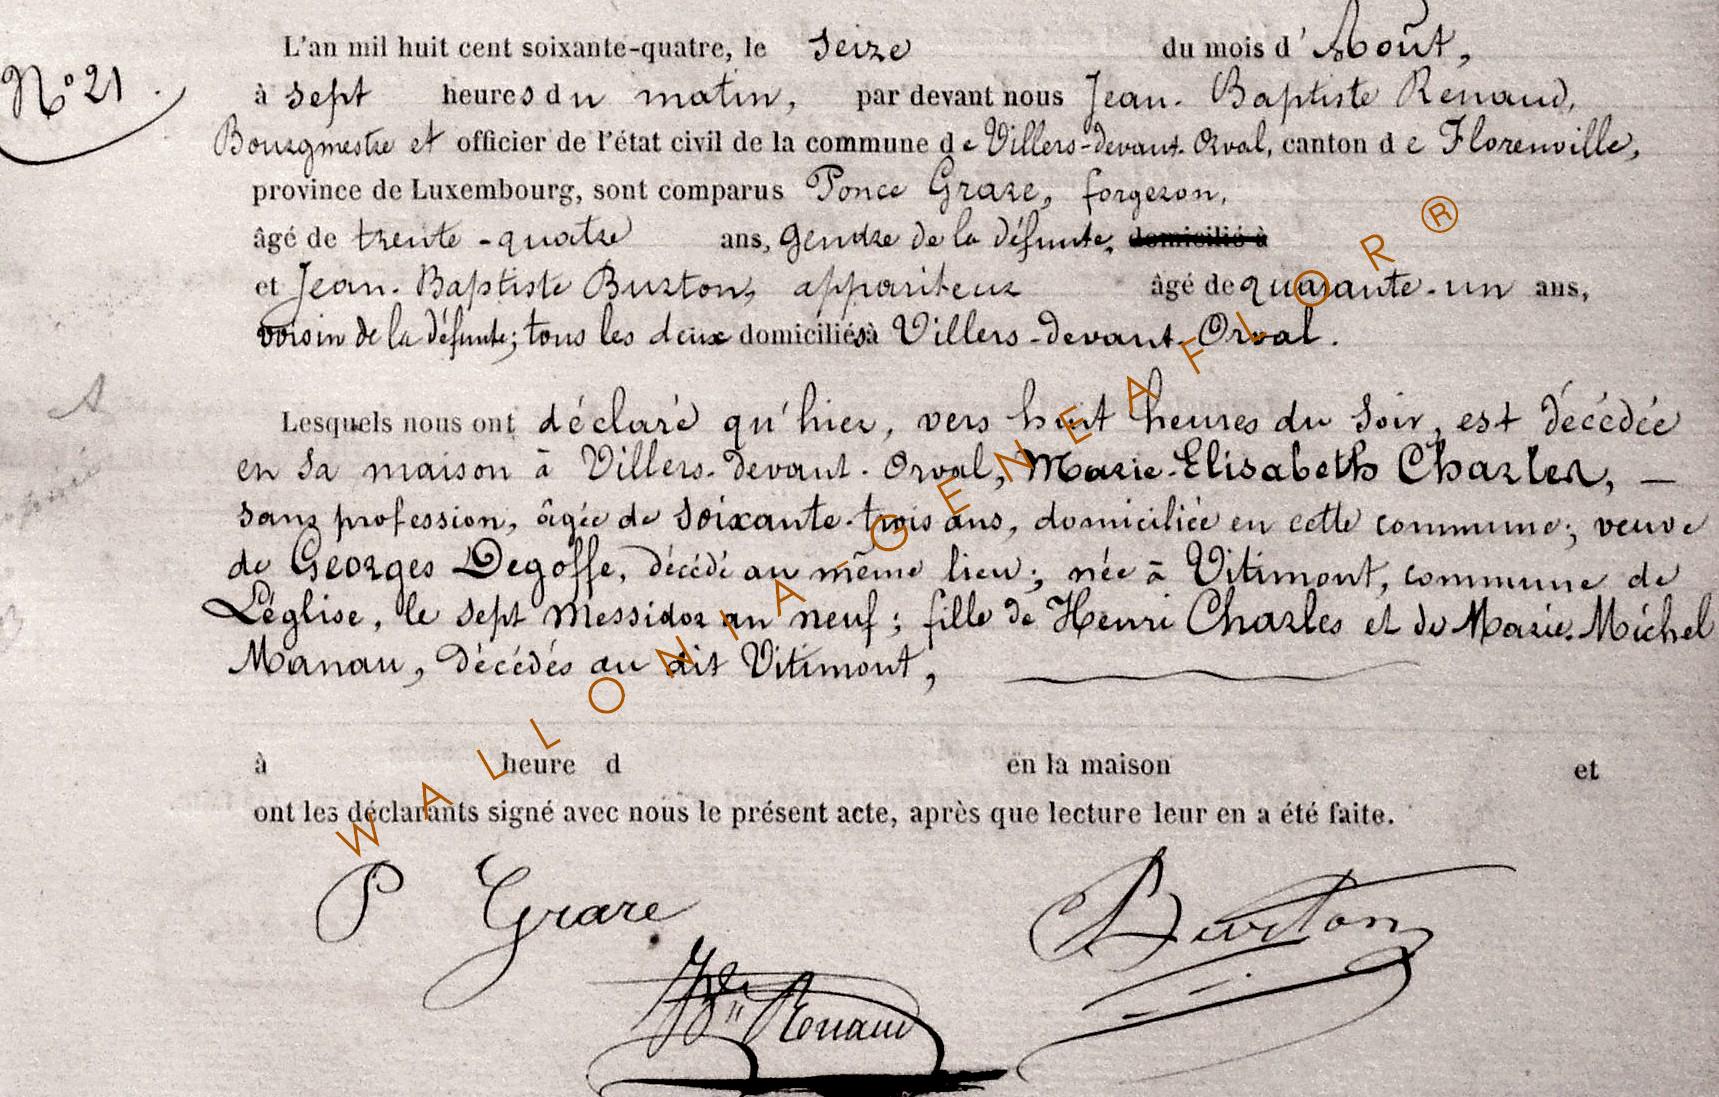 L'an mil huit cent soixante-quatre, le seize du mois d'Août,
N° 21.
à sept heures du matin, par devant nous Jean-Baptiste Renaud,
Bourgmestre et officier de l'état civil de la commune de Villers-devant-Orval, canton de Florenville,
province de Luxembourg, sont comparus Ponce Grare, forgeron,
âgé de trente-quatre ans, gendre de la défunte, domicilié à
et Jean-Baptiste Burton, appariteur âgé de quarante-un ans,
voisin de la défunte; tous les deux domiciliés à Villers-devant-Orval.
Lesquels nous ont déclaré qu'hier, vers huit heures du soir, est décédée
en sa maison à Villers-devant-Orval, Marie-Elisabeth Charles, —
sans profession, âgée de soixante-trois ans, domiciliée en cette commune; veuve
de Georges Degoffe, décédé au même lieu; née à Vitimont, commune de
Léglise, le sept Messidor an neuf; fille de Henri Charles et de Marie-Michel
Manau, décédés au dit Vitimont,
à heure d en la maison et
ont les déclarants signé avec nous le présent acte, après que lecture leur en a été faite.
P Grare
Burton
JBte Renaud
WALLONIA-GENEAFLOR ®